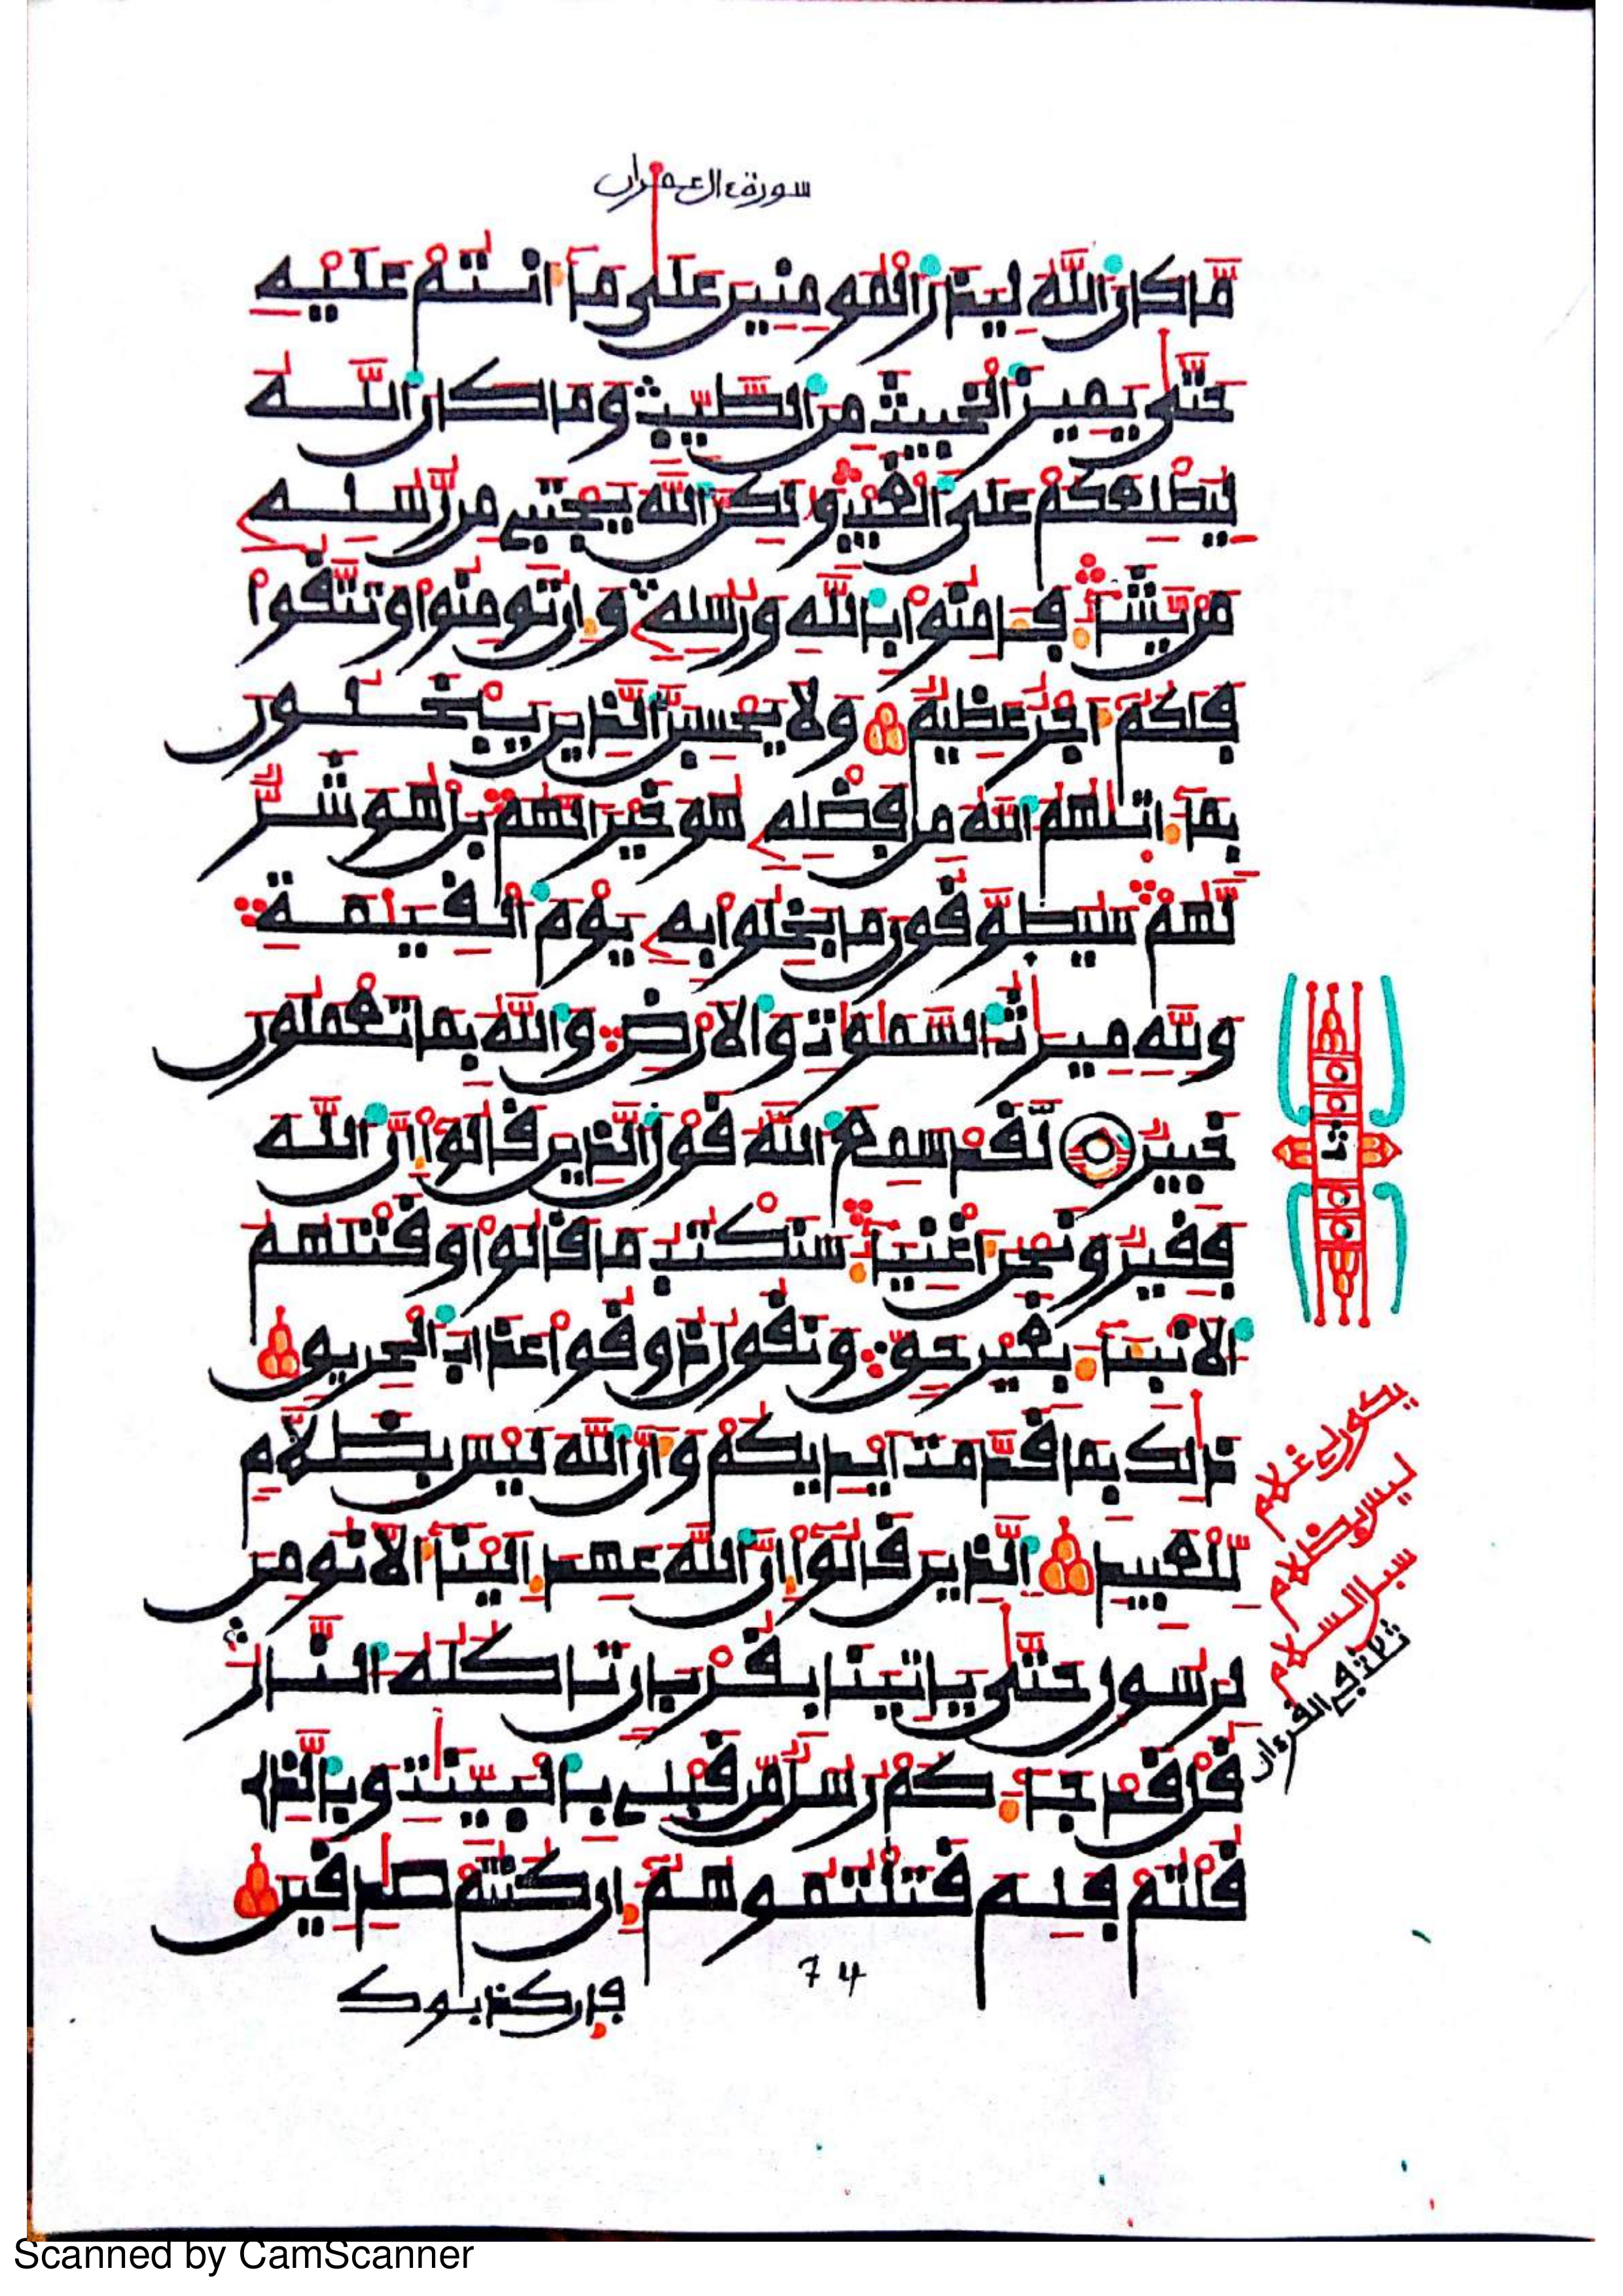 سورة ءال عمران
مَّا كَانَ اَللَّهُ لِيَذَرَ اَلْمُومِنِينَ عَلَىٰ مَآ أَنتُمْ عَلَيْهِ
حَتَّىٰ يَمِيزَ اَلْخَبِيثَ مِنَ اَلطَّيِّبِ وَمَا كَانَ اَللَّهُ
لِيُطْلِعَكُمْ عَلَى اَلْغَيْبِ وَلَٰكِنَّ اَللَّهَ يَجْتَبِے مِن رُّسُلِهِ
مَنْ يَّشَآءُ فَـَٔامِنُوا بِاللَّهِ وَرُسُلِهِ وَإِن تُومِنُوا وَتَتَّقُوا
فَلَكُمْ أَجْرٌ عَظِيمٌ وَلَا يَحْسِبَنَّ اَلذِينَ يَبْخَلُونَ
بِمَآ ءَاتَىٰهُمُ اُللَّهُ مِن فَضْلِهِ هُوَ خَيْرًا لَّهُم بَلْ هُوَ شَرٌّ
لَّهُمْ سَيُطَوَّقُونَ مَا بَخِلُوا بِهِ يَوْمَ اَلْقِيَٰمَةِ
وَلِلَّهِ مِيرَٰثُ اُلسَّمَٰوَٰتِ وَالَارْضِ وَاللَّهُ بِمَا تَعْمَلُونَ
خَبِيرٌ لَّقَدْ سَمِعَ اَللَّهُ قَوْلَ اَلذِينَ قَالُوا إِنَّ اَللَّهَ
فَقِيرٌ وَنَحْنُ أَغْنِيَآءُ سَنَكْتُبُ مَا قَالُوا وَقَتْلَهُمُ
اُلَانۢبِئَآءَ بِغَيْرِ حَقٍّ وَنَقُولُ ذُوقُوا عَذَابَ اَلْحَرِيقِ
ذَٰلِكَ بِمَا قَدَّمَتَ اَيْدِيكُمْ وَأَنَّ اَللَّهَ لَيْسَ بِظَلَّٰمٍ
لِّلْعَبِيدِ اِلذِينَ قَالُوا إِنَّ اَللَّهَ عَهِدَ إِلَيْنَآ أَلَّا نُومِنَ
لِرَسُولٍ حَتَّىٰ يَاتِيَنَا بِقُرْبَانٍ تَاكُلُهُ اُلنَّارُ
قُلْ قَدْ جَآءَكُمْ رُسُلٌ مِّن قَبْلِے بِالْبَيِّنَٰتِ وَبِالذِے
قُلْتُمْ فَلِمَ قَتَلْتُمُوهُمُۥٓ إِن كُنتُمْ صَٰدِقِينَ
فإن كذبوك
74
ثـ
يكون لي غلام
ليس بظلام
سبل السلام
ثلاثة في القرءان
Scanned by CamScanner